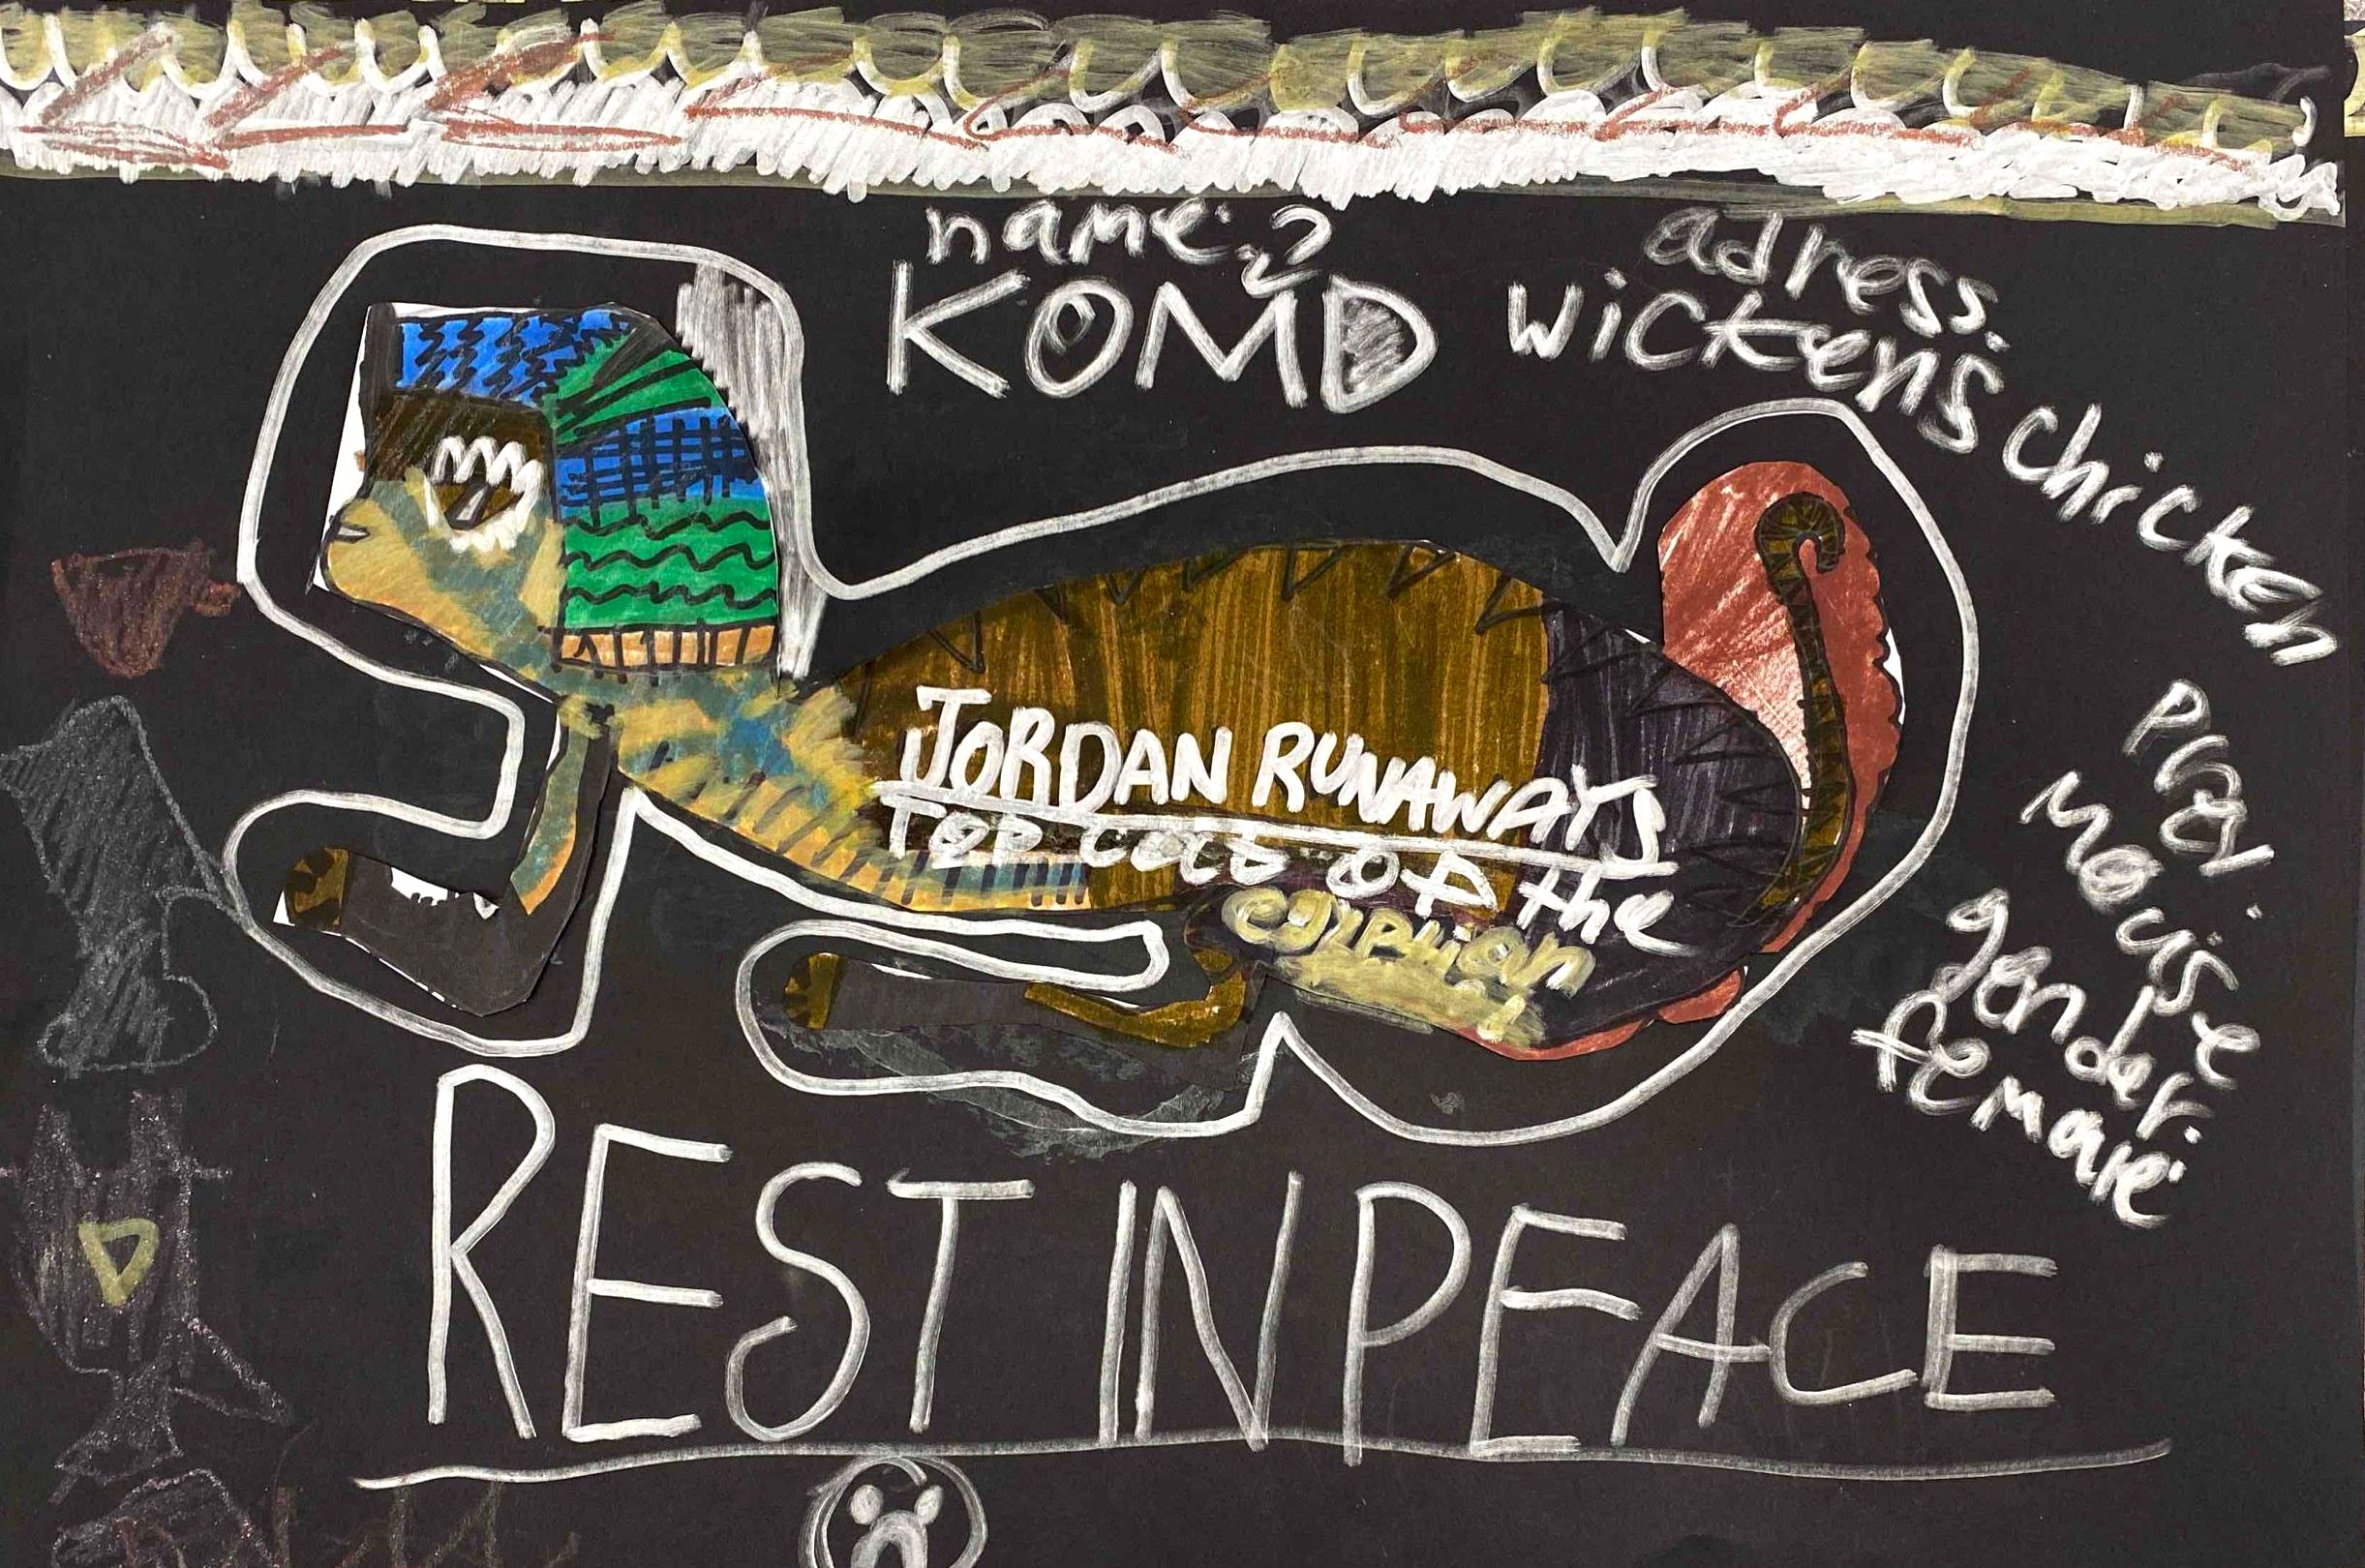 name:
KOMD
adress.
wickens chicken
JORDAN RUNAWAYS
TOP CATS OF the
prey.
Mouse
gender.
female
REST IN PEACE